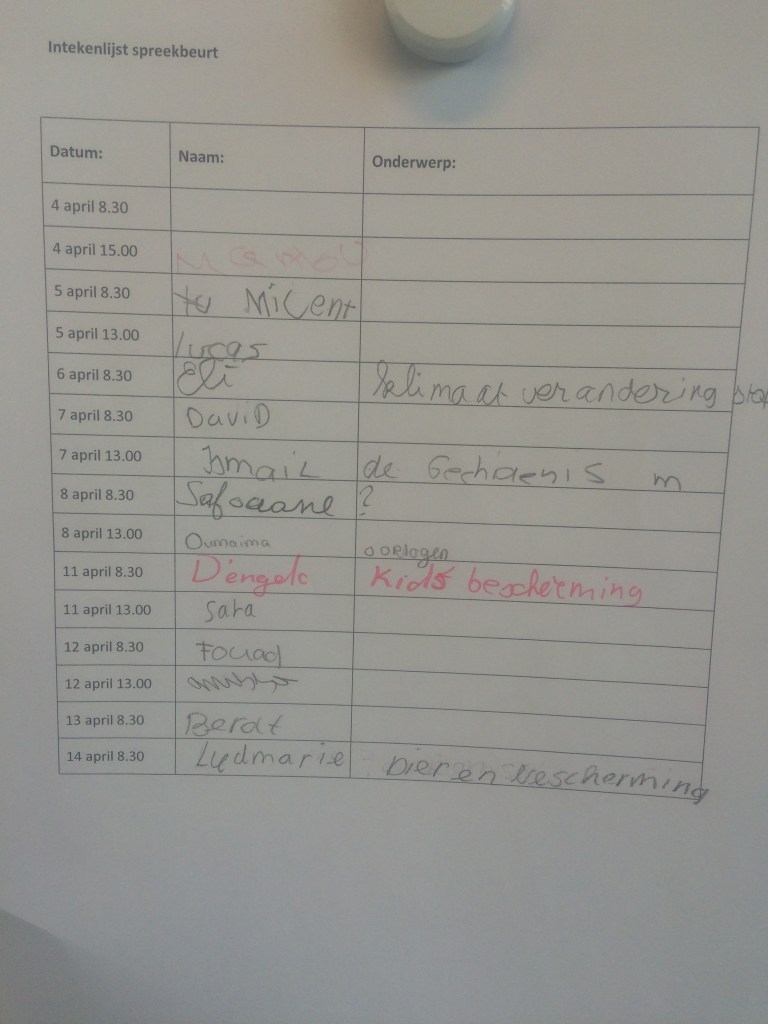 Intekenlijst spreekbeurt
Datum: Naam: Onderwerp:
4 april 8.30
4 april 15.00
5 april 8.30 Micent
5 april 13.00 lucas
6 april 8.30 Eli klimaat verandering
7 april 8.30 DaviD
7 april 13.00 Ismail de Gechidenis m
8 april 8.30 Safouane ?
8 april 13.00 Oumaima oorlogen
11 april 8.30 Kids bescherming
11 april 13.00 Sara
12 april 8.30 Fouad
12 april 13.00
13 april 8.30 Berat
14 april 8.30 Lydmarie Dieren bescherming